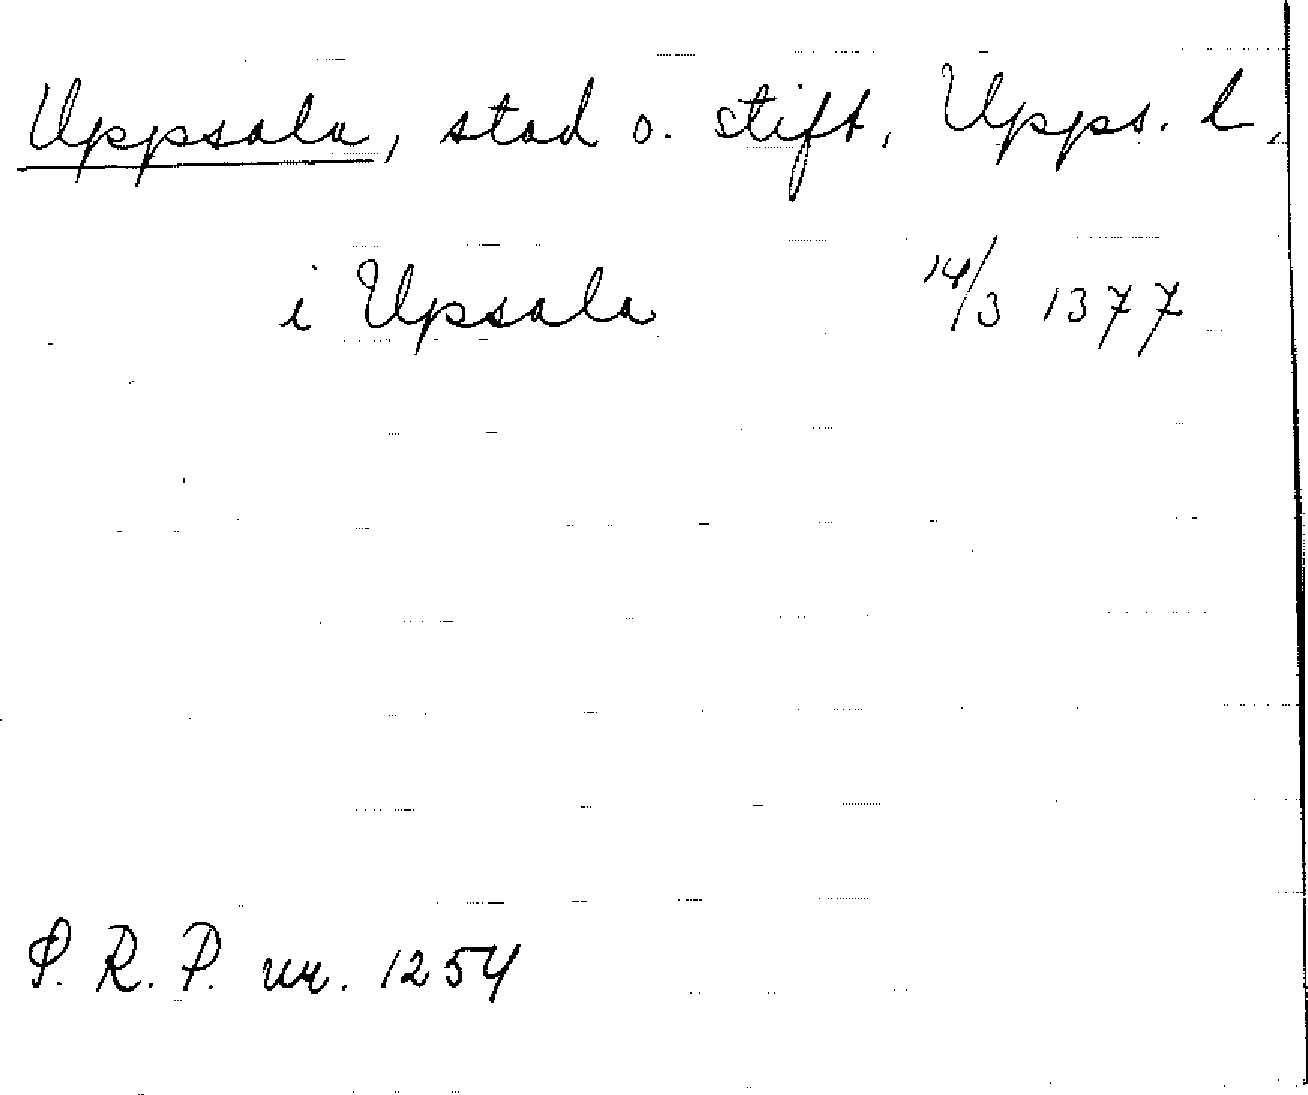 Uppsala, stad o. stift, Upps. l.
i Upsala 14/3 1377
P. R. P. nr. 1254